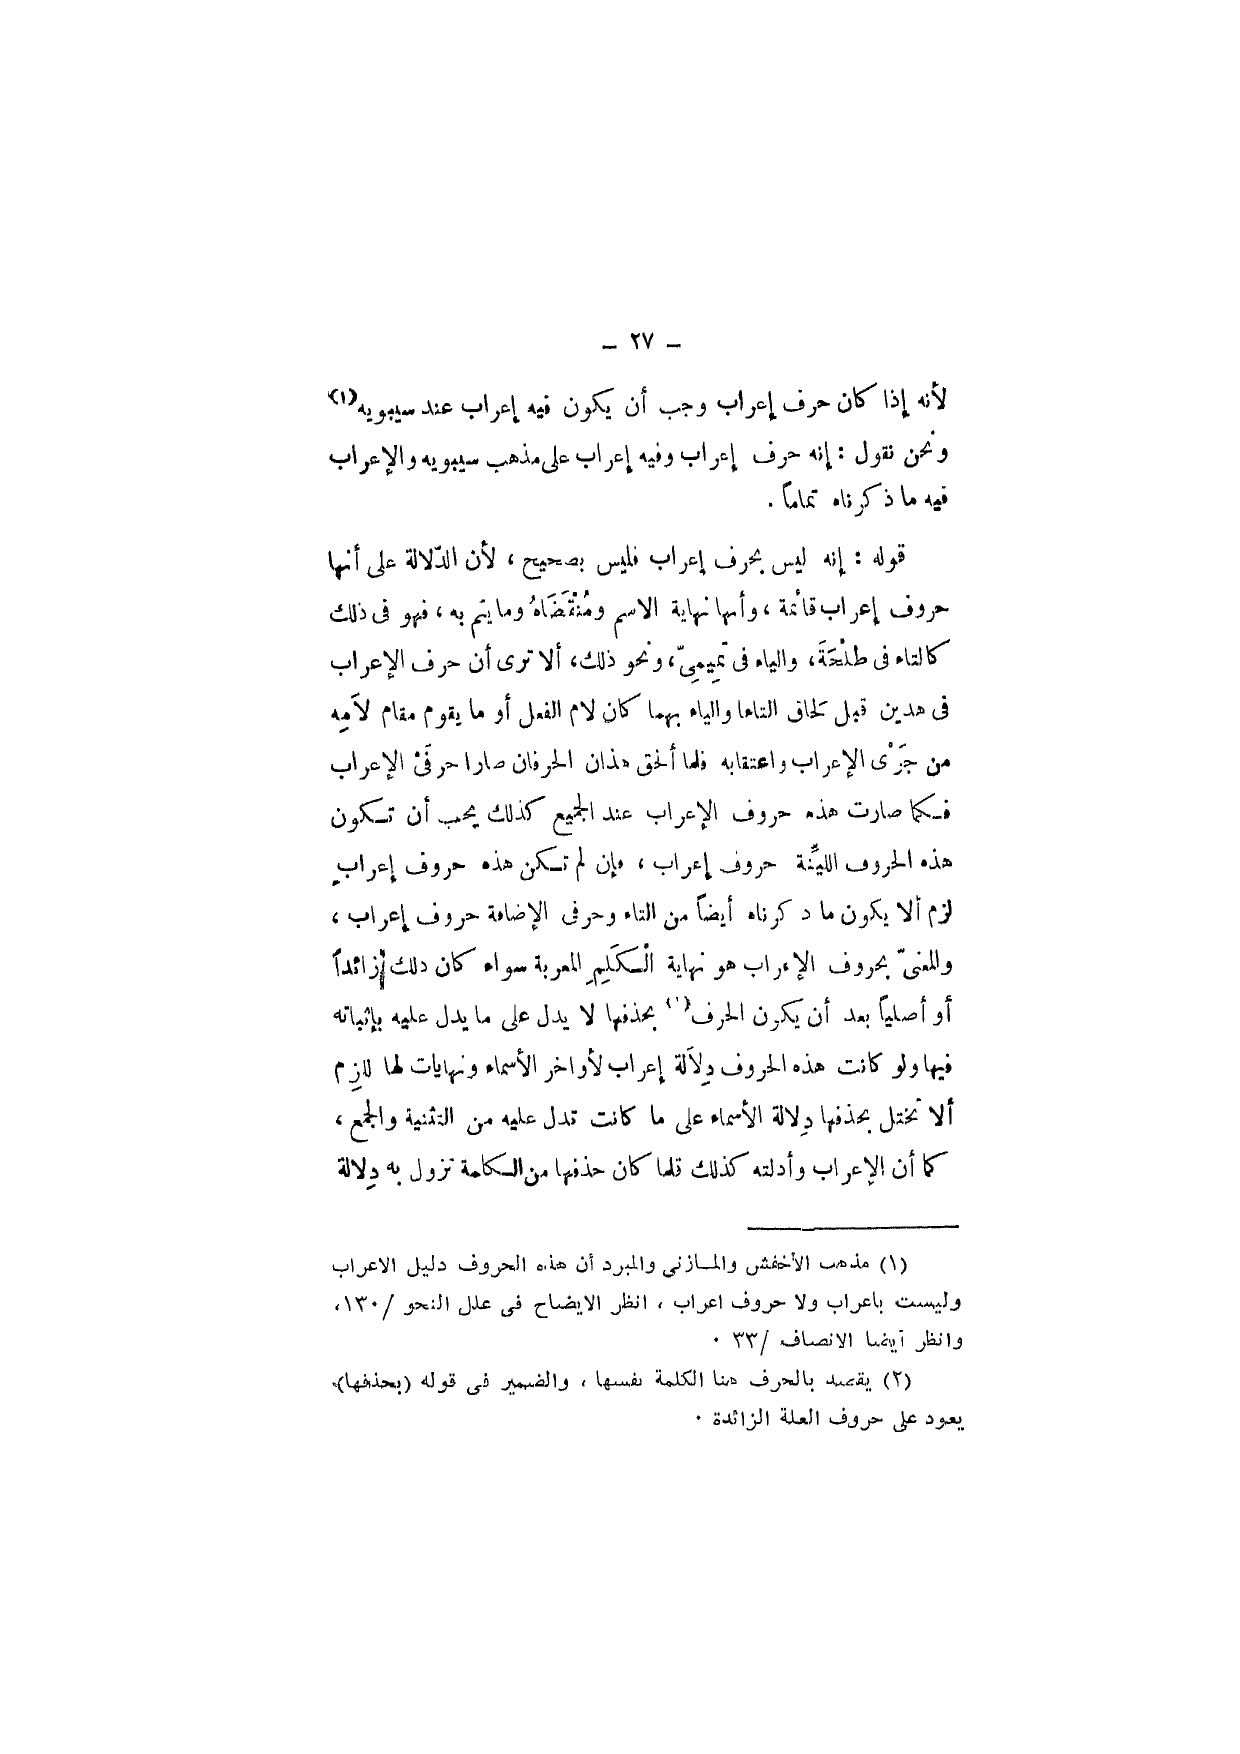 – ٢٧ –
لأنه إذا كان حرف إعراب وجب أن يكون فيه إعراب عند سيبويه (١)
ونحن نقول : إنه حرف إعراب وفيه إعراب على مذهب سيبويه والإعراب
فيه ما ذكرناه تماماً .
قوله : إنه ليس بحرف إعراب فليس بصحيح ، لأن الدّلالة على أنها
حروف إعراب قائمة ، وأنها نهاية الاسم ومُنْقَضَاهُ وما يتم به ، فهو فى ذلك
كالتاء فى طلْحَةَ ، والياء فى تمِيمِىّ ، ونحو ذلك ، ألا ترى أن حرف الإعراب
فى هذين قبل لحاق التاءا والياء بهما كان لام الفعل أو ما يقوم مقام لاَمِه
من جَرْى الإعراب واعتقابه فلما ألحق هذان الحرفان صارا حرفَىْ الإعراب
فكما صارت هذه حروف الإعراب عند الجميع كذلك يجب أن تكون
هذه الحروف الليِّنة حروف إعراب ، فإن لم تكن هذه حروف إعرابٍ
لزم ألا يكون ما ذكرناه أيضاً من التاء وحرفى الإضافة حروف إعراب ،
والمعنىّ بحروف الإعراب هو نهاية الْكَلِمِ المعربة سواء كان ذلك زائداً
أو أصلياً بعد أن يكون الحرف بحذفها لا يدل على ما يدل عليه بإثباته
فيها ولو كانت هذه الحروف دِلاَلة إعراب لأواخر الأسماء ونهايات لها للزِم
ألا تختل بحذفها دِلالة الأسماء على ما كانت تدل عليه من التثنية والجمع ،
كما أن الإعراب وأدلته كذلك فلما كان حذفها من الكلمة تزول به دِلالة
(١) مذهب الأخفش والمازنى والمبرد أن هذه الحروف دليل الاعراب
وليست باعراب ولا حروف اعراب ، انظر الايضاح فى علل النحو /١٣٠،
وانظر أيضا الانصاف /٣٣ ٠
(٢) يقصد بالحرف هنا الكلمة نفسها ، والضمير فى قوله (بحذفها)،
يعود على حروف العلة الزائدة ٠